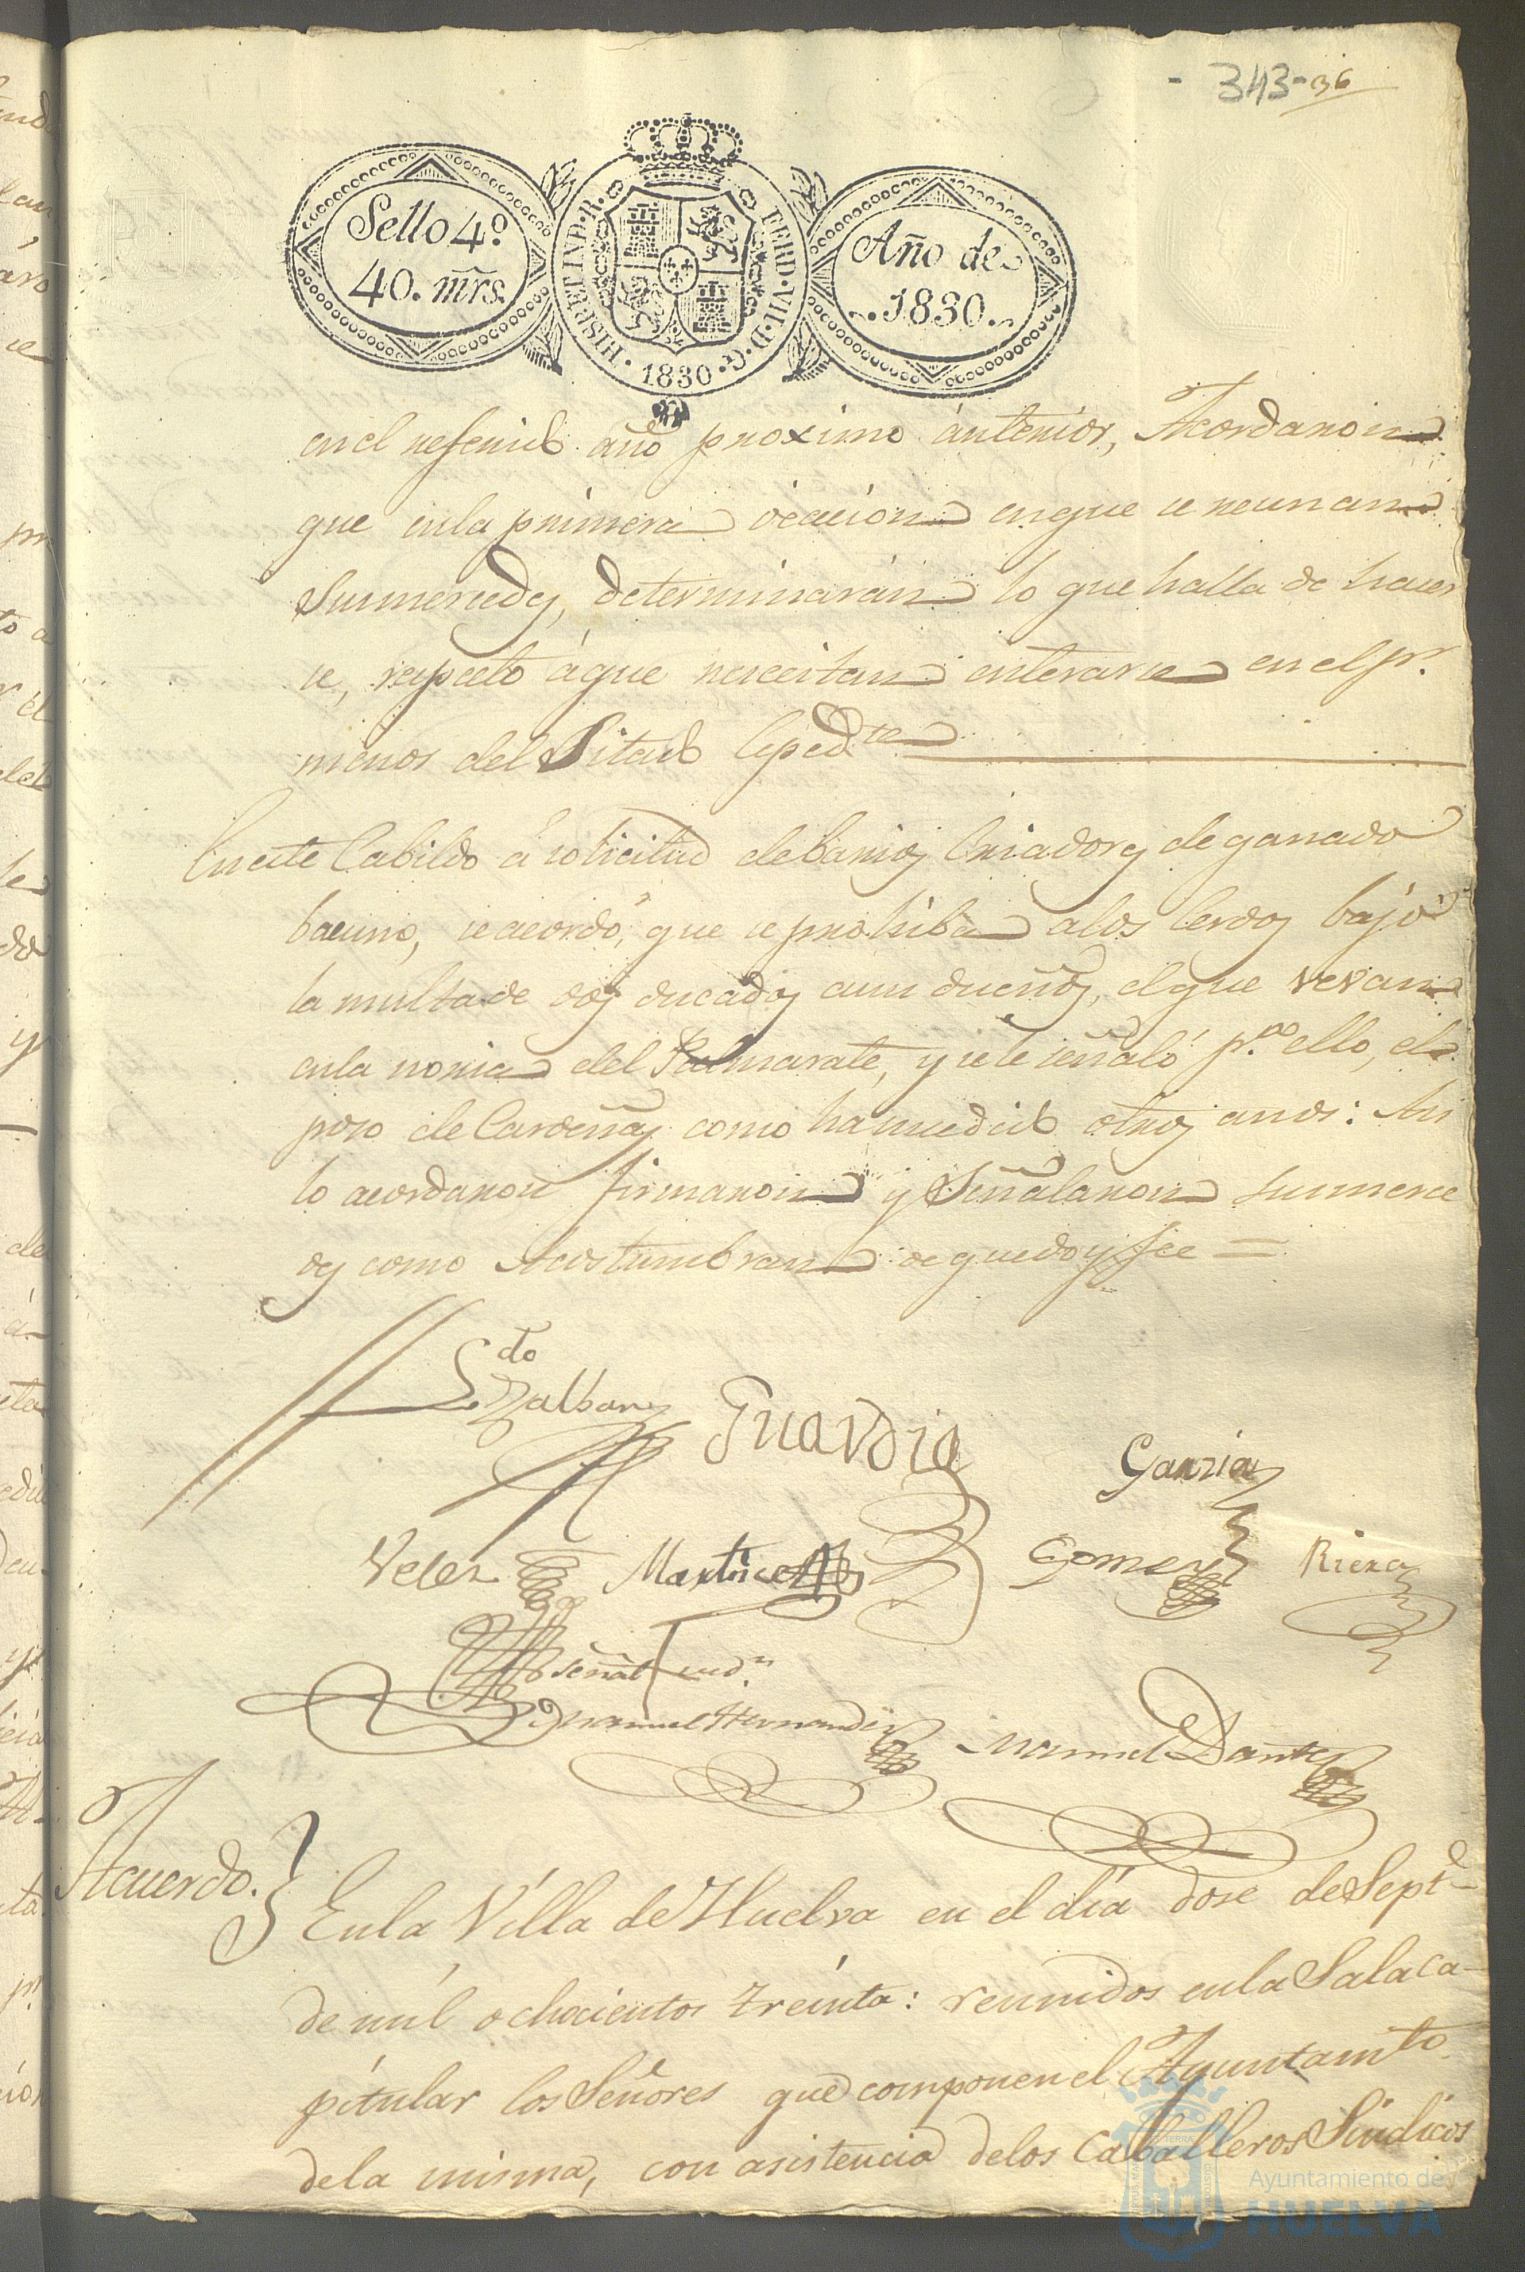 - 343 - 36
Sello 4º.
40. mrs.
HISP. ET IND. R.
FERD. VII. D. G.
1830
Año de
1830.
en el referido año proximo anterior, Acordaron
que en la primera ocacion en que se reunan
Sus mercedes, determinarán lo que halla de hacer
se, respecto á que necesitan enterarse en el pr.
menos del citado Espedte
En este Cabildo á solicitud de barios Criadores de ganado
bacuno, se acordó, que se prohiba a los Cerdos bajo
la multa de dos ducados a sus dueños, el que vevan
en la noria del Palmarate, y se le señaló pa ello, el
poso de Cardeñas como ha sucedido otros anos: Asi
lo acordaron firmaron y Señalaron sus merce
des como Acostumbran de que doy fee =
Ldo
Zalbany
Guardia
Garzia
Velez
Martinez
Gomez
Riera
señal
Manuel Hernandez
Manuel Dante
Acuerdo.
En la Villa de Huelva en el día dose de Septe
de mil ochocientos treinta: reunidos en la Sala ca-
pitular los Señores que componen el Ayuntamto
de la misma, con asistencia de los Caballeros Sindicos
Ayuntamiento de
HUELVA